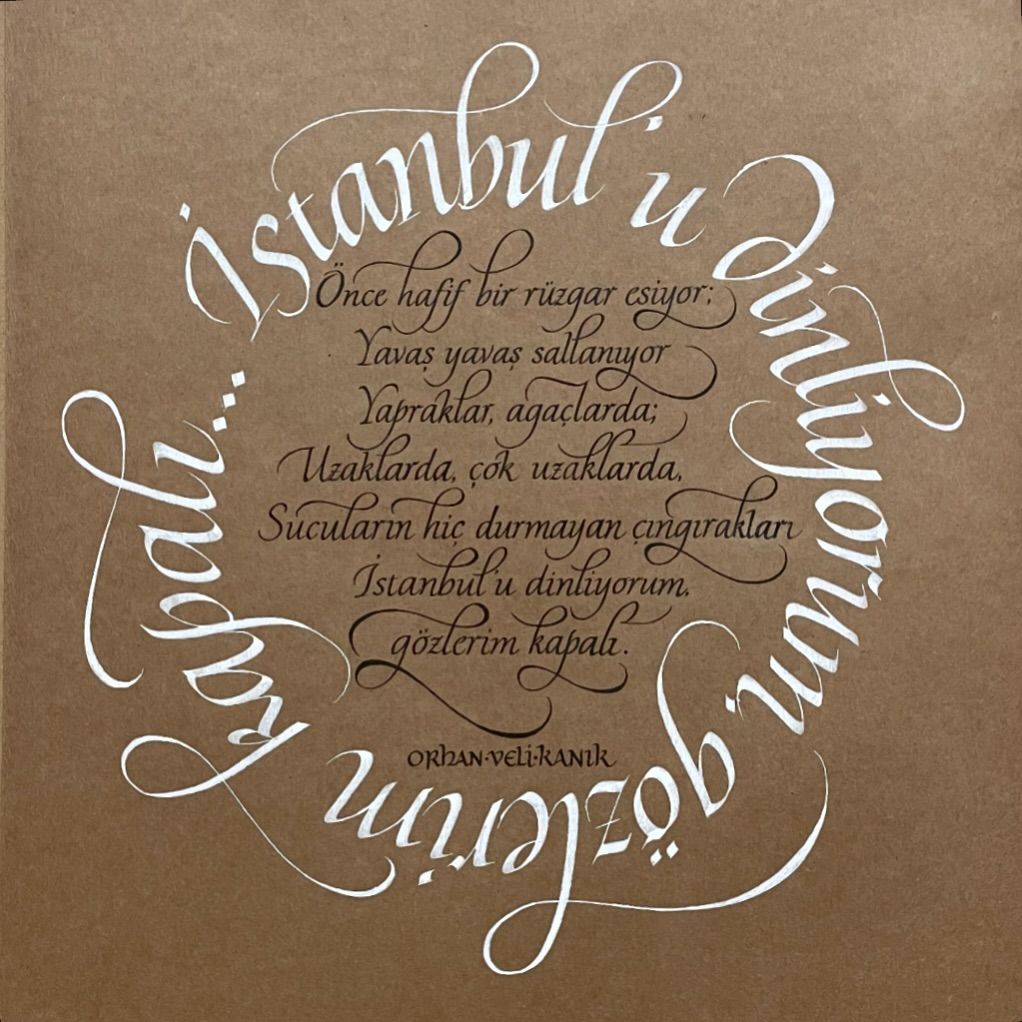 İstanbul'u dinliyorum, gözlerim kapalı...
Önce hafif bir rüzgar esiyor;
Yavaş yavaş sallanıyor
Yapraklar, ağaçlarda;
Uzaklarda, çok uzaklarda,
Sucuların hiç durmayan çıngırakları
İstanbul'u dinliyorum,
gözlerim kapalı.
ORHAN·VELİ·KANIK